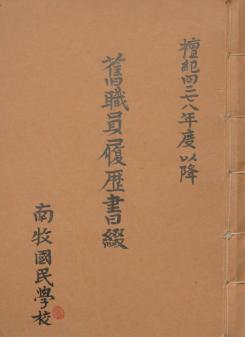 檀紀四二七八年度以降
舊職員履歷書綴
南牧國民學校